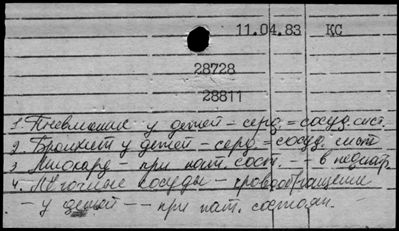 11.04.83 КС
28728
28811
1. Пневмония у детей – серд. = сосуд. сист.
2. Бронхит у детей – серд. = сосуд. сист
3. Миокард – при пат. сост. -- в педиатр.
4. Лёгочные сосуды – кровообращение
– у детей -- при пат. состоян.